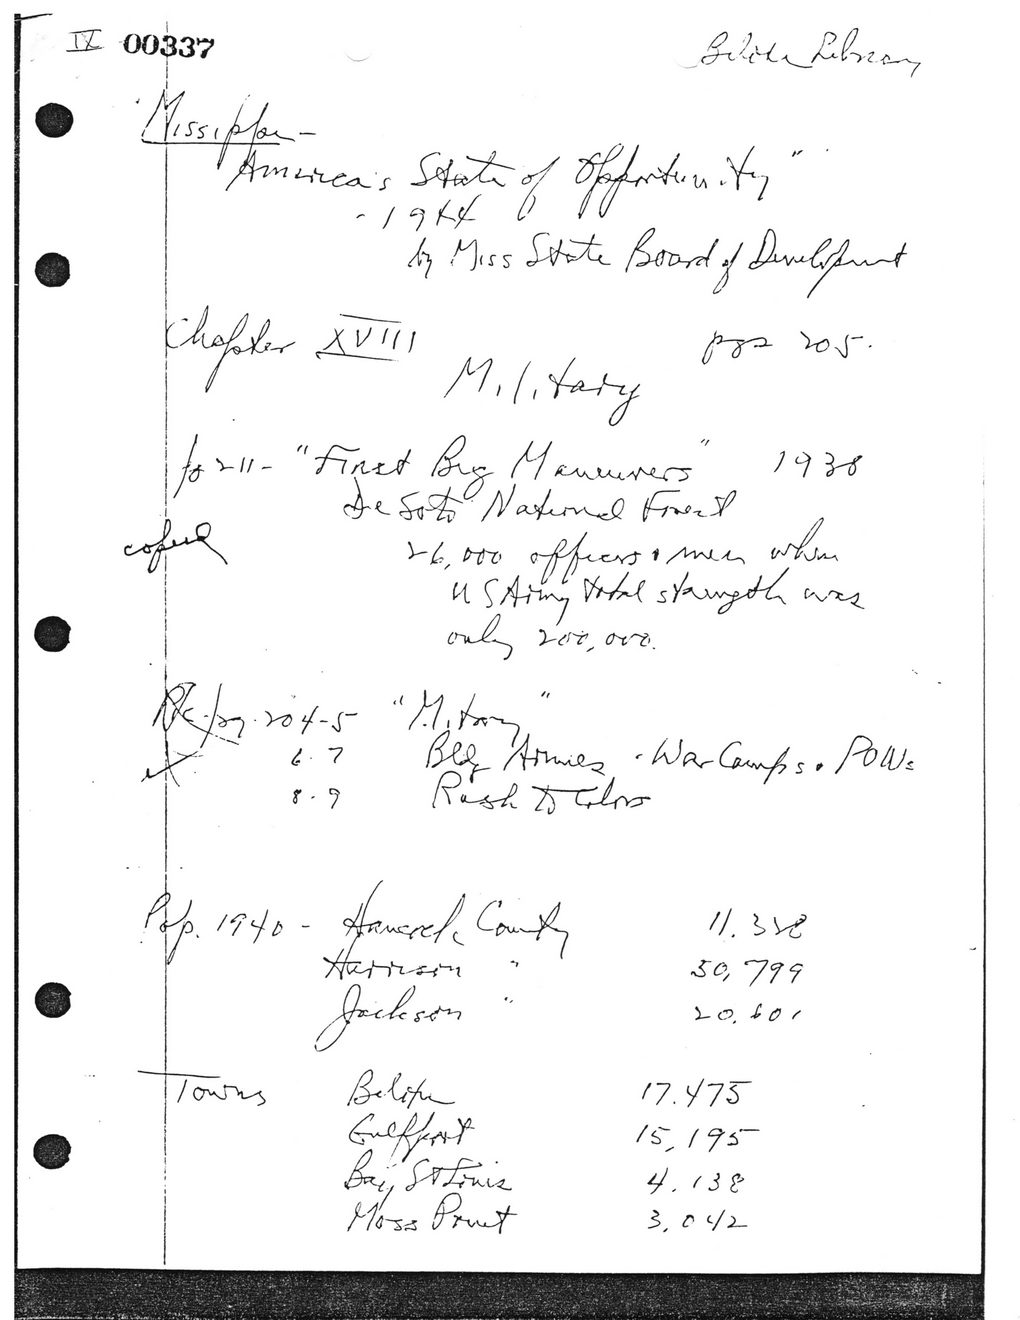 IX 00337
Biloxi Library
"Mississippi -
America's State of Opportunity"
- 1944
by Miss State Board of Development
Chapter XVIII pgs 205.
Military
pg 211 - "First Big Maneuvers" 1938
De Soto National Forest
copied
26,000 officers & men when
US Army total strength was
only 200,000.
pg. 204-5 "Military"
6-7 Bldg Armies - War Camps & POWs
8-9 Rush to Colors
Pop. 1940 - Hancock County 11.328
Harrison " 50,799
Jackson " 20.601
Towns Biloxi 17.475
Gulfport 15,195
Bay St Louis 4.138
Moss Point 3,042